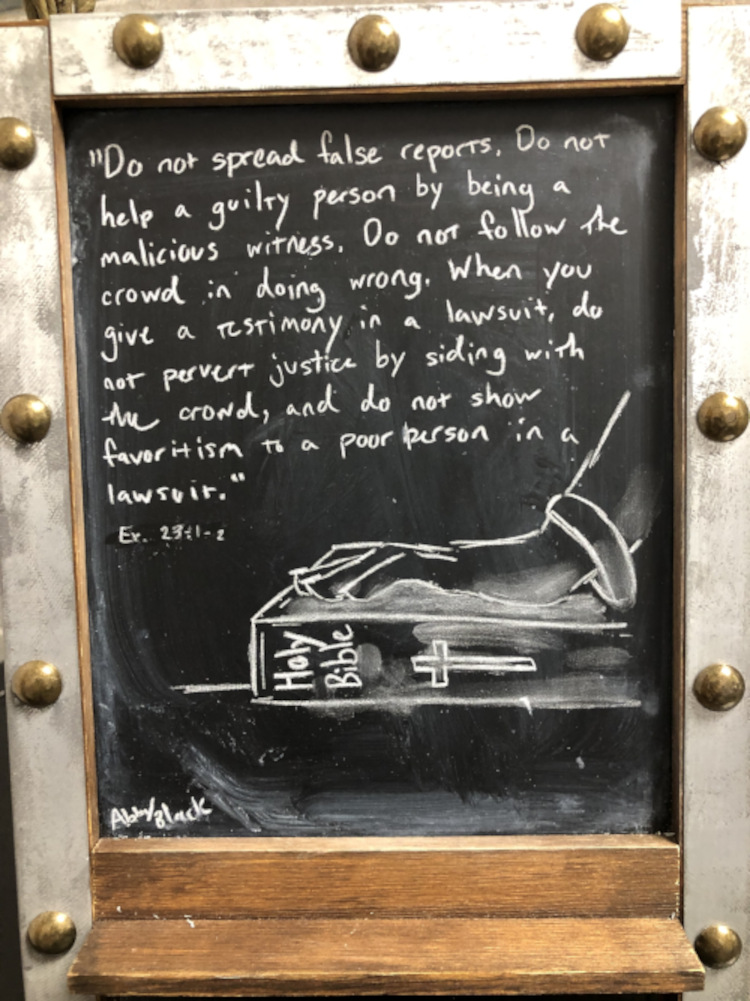 "Do not spread false reports. Do not
help a guilty person by being a
malicious witness. Do not follow the
crowd in doing wrong. When you
give a testimony in a lawsuit, do
not pervert justice by siding with
the crowd, and do not show
favoritism to a poor person in a
lawsuit."
Ex. 23:1-2
Holy
Bible
Abby Black